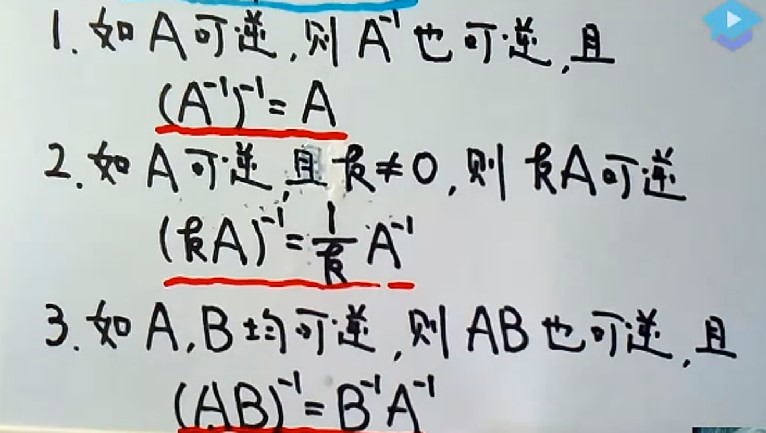 1. 如A可逆,则A⁻¹也可逆,且
(A⁻¹)⁻¹=A
2. 如A可逆,且k≠0,则kA可逆
(kA)⁻¹=1/k A⁻¹
3. 如A,B均可逆,则AB也可逆,且
(AB)⁻¹=B⁻¹A⁻¹